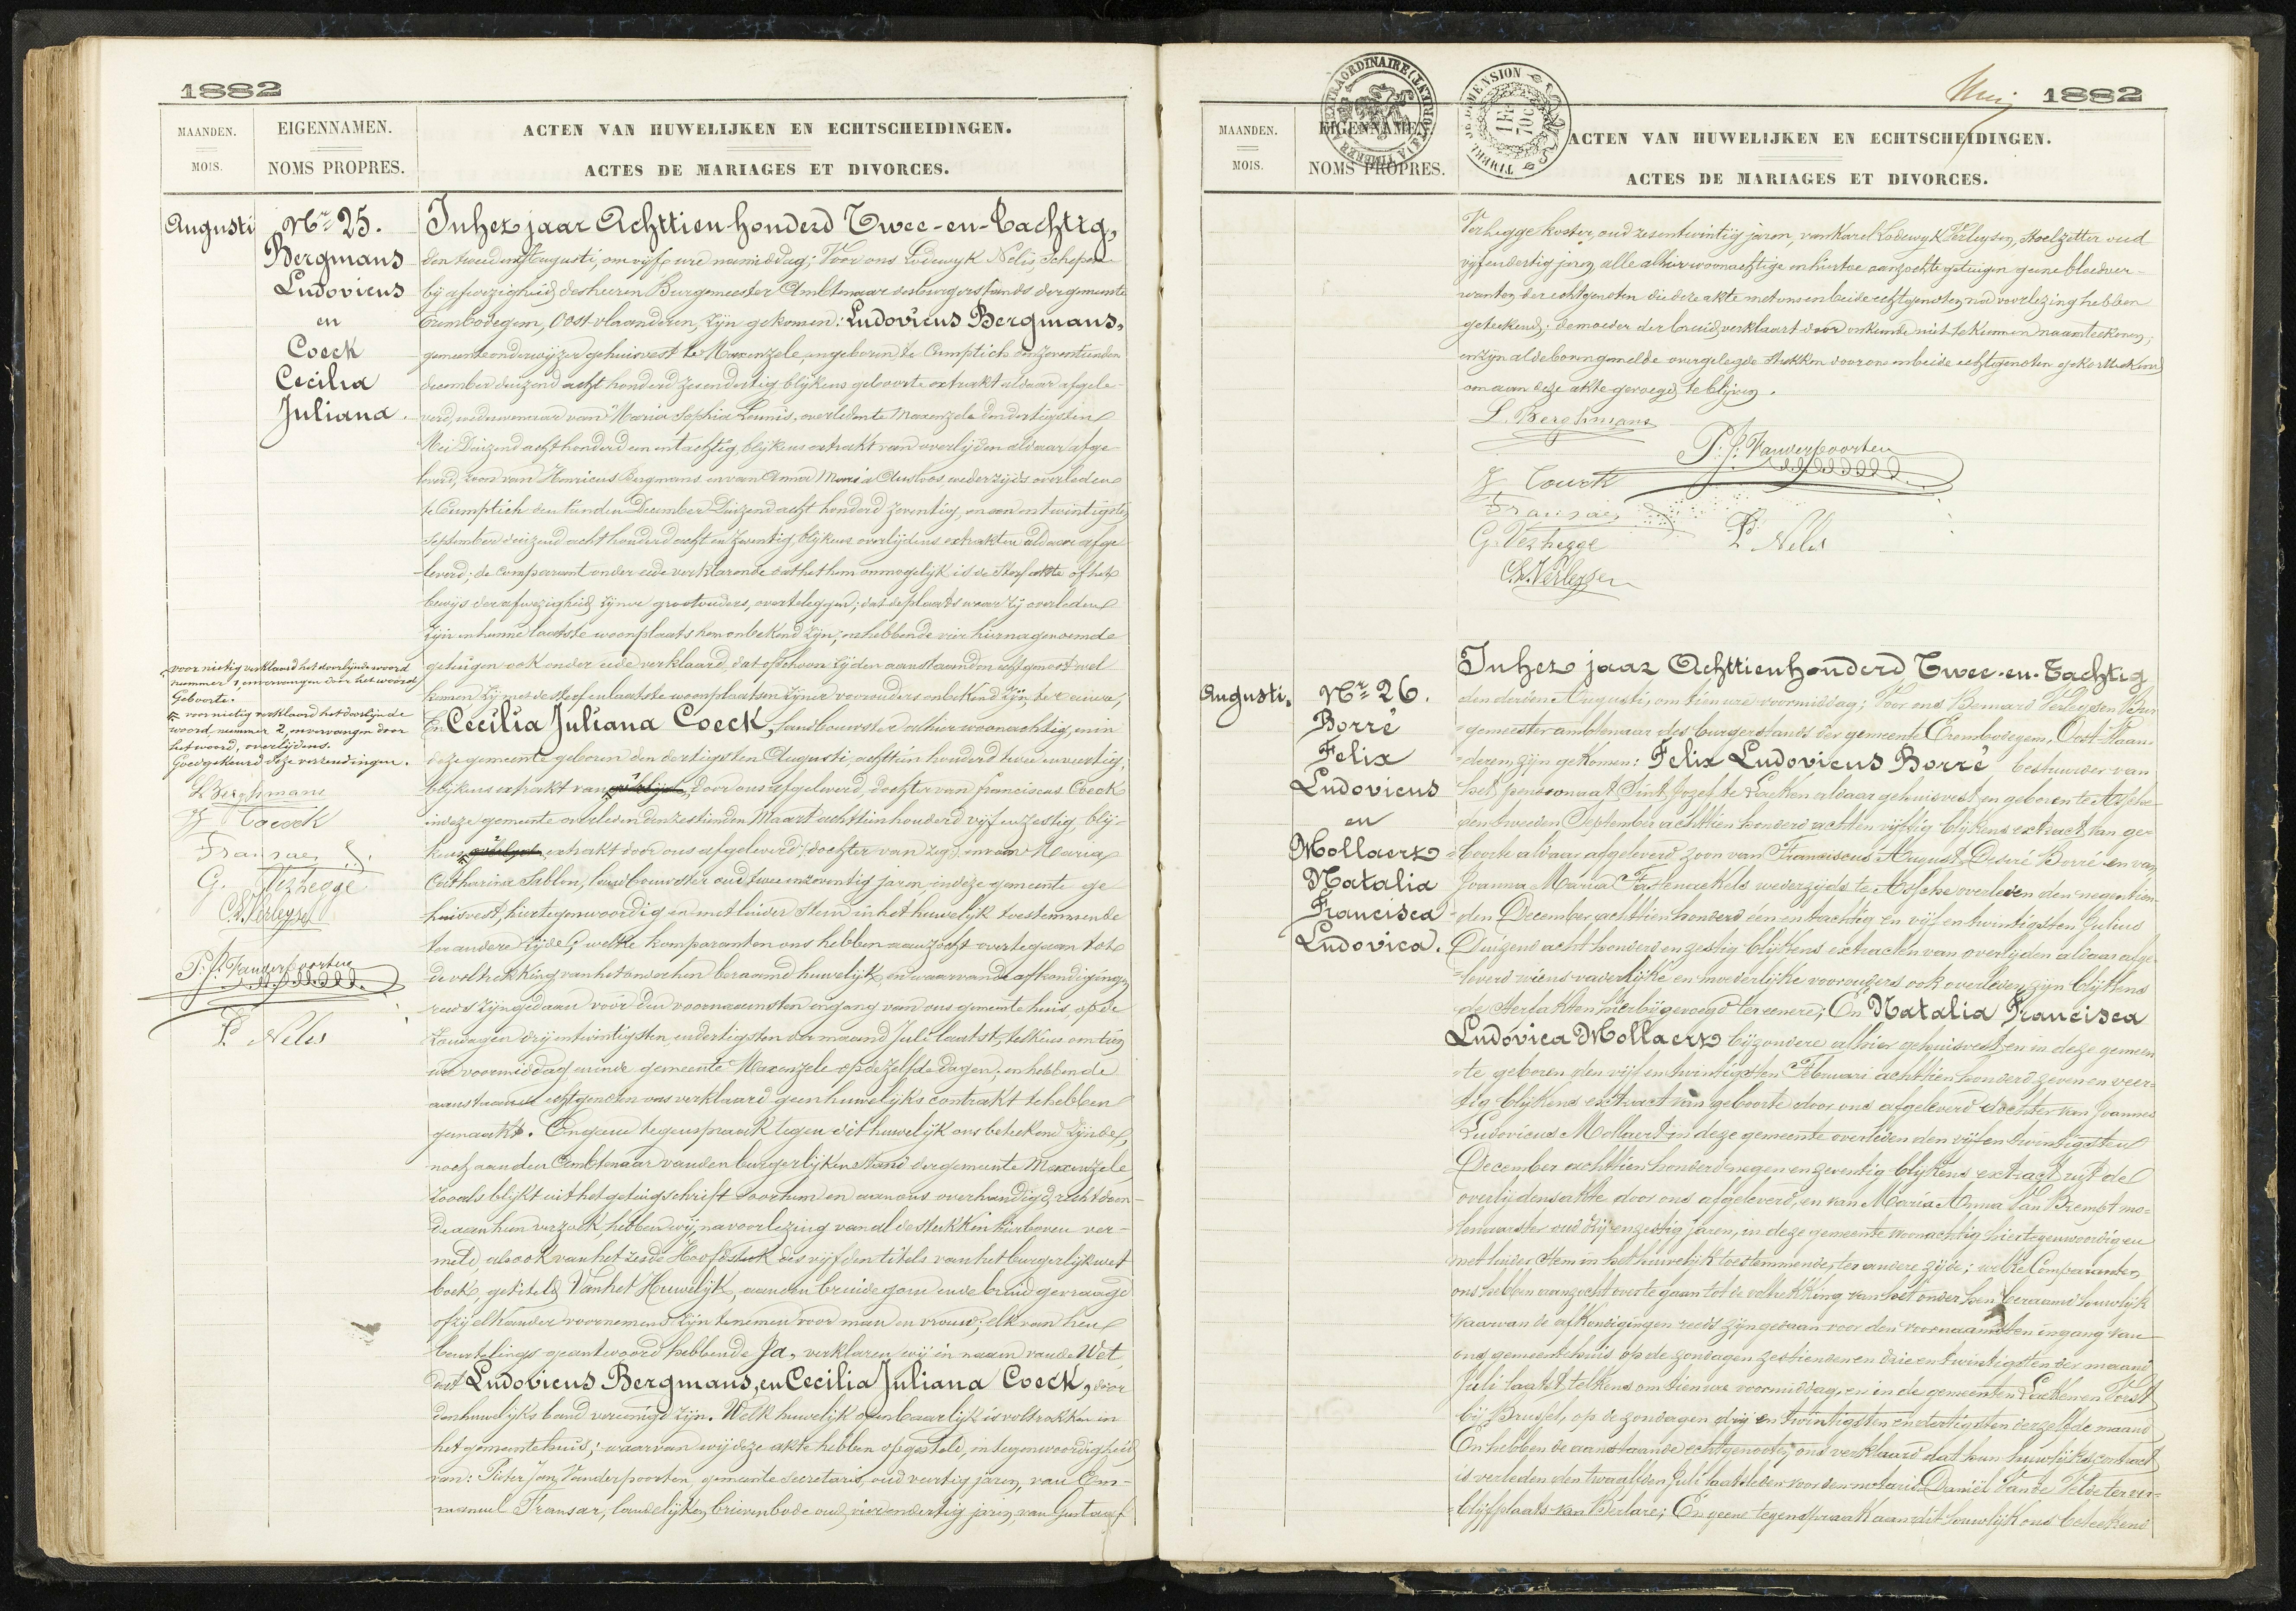 1882
MAANDEN.
MOIS.
EIGENNAMEN.
NOMS PROPRES.
ACTEN VAN HUWELIJKEN EN ECHTSCHEIDINGEN.
ACTES DE MARIAGES ET DIVORCES.
Augusti
Nr 25.
Bergmans
Ludovicus
en
Coeck
Cecilia
Juliana.
In het jaar Achttien honderd Twee-en-tachtig,
den tweeden Augusti, om vijf ure namiddag; Voor ons Lodewyk Nelis, Schepen
bij afwezigheid des heeren Burgemeester Ambtenaar des burgerstands der gemeente
Erembodegem, Oost vlaanderen, zijn gekomen: Ludovicus Bergmans,
gemeente onderwijzer gehuisvest te Maxenzele, en geboren te Cumptich den zeventienden
december duizend acht honderd zesendertig, blijkens geboorte extrakt aldaar afgele-
verd, weduwenaar van Maria Sophia Leunis, overleden te Maxenzele den dertigsten
Mei Duizend acht honderd een en tachtig, blijkens extrakt van overlijden aldaar afge
leverd, zoon van Henricus Bergmans en van Anna Maria Austoos, wederzijds overleden
te Cumptich den tienden December Duizend acht honderd zeventig, en een en twintigsten
September duizend acht honderd acht en zeventig, blijkens overlijdens extrakten aldaar afge
leverd; de comparant onder eede verklarende dat het hem onmogelijk is de Sterf akte of het
bewijs der afwezigheid zijner grootouders, over te leggen; dat de plaats waar zij overleden
zijn en hunne laatste woonplaats hem onbekend zijn; en hebbende vier hierna genoemde
getuigen ook onder eede verklaard, dat ofschoon zij den aanstaanden echtgenoot wel
kennen, zij met de sterf en laatste woonplaatsen zijner voorouders onbekend zijn, ter eenre,
En Cecilia Juliana Coeck, landbouwster alhier woonachtig, en in
deze gemeente geboren den dertigsten Augusti, achttien honderd twee en veertig,
blijkens extrakt van door ons afgeleverd, dochter van Franciscus Coeck
in deze gemeente overleden den zestienden Maart achttien honderd vijf en zestig, blij-
kens extrakt door ons afgeleverd (dochter van zeg) en van Maria
Catharina Sablon, landbouwster oud twee en zeventig jaren in deze gemeente ge
huisvest, hier tegenwoordig en met luider stem in het huwelijk toestemmende
ter andere zijde; welke komparanten ons hebben aanzocht over te gaan tot
de voltrekking van het onder hen beraamd huwelijk, en waarvan de afkondigingen
reeds zijn gedaan voor den voornaamsten ingang van ons gemeente huis, op de
Zondagen drij en twintigsten, en dertigsten der maand Juli laatst, telkens om tien
ure voormiddag en in de gemeente Maxenzele op dezelfde dagen; en hebben de
aanstaande echtgenoten ons verklaard geen huwelijks contrakt te hebben
gemaakt. En geene tegenspraak tegen dit huwelijk ons beteekend zijnde,
noch aan den Ambtenaar van den burgerlijken Stand der gemeente Maxenzele
zooals blijkt uit het getuigschrift door hem en aan ons overhandigd, recht doen-
de aan hun verzoek, hebben wij, na voorlezing van al de stukken hierboven ver-
meld, alsook van het zesde Hoofdstuk des vijfden titels van het burgerlijk wet
boek, getiteld Van het Huwelijk, aan den bruidegom en de bruid gevraagd
of zij elkander voornemens zijn te nemen voor man en vrouw; elk van hen
beurtelings geantwoord hebbende Ja, verklaren wij in naam van de Wet
dat Ludovicus Bergmans, en Cecilia Juliana Coeck, door
den huwelijks band vereenigd zijn. Welk huwelijk openbaarlijk is voltrokken in
het gemeentehuis; waarvan wij deze akte hebben opgesteld, in tegenwoordigheid
van: Pieter Jan Vanderpoorten gemeente secretaris, oud veertig jaren, van Em-
manuel Fransaer, landelijken brievenbode oud vierendertig jaren, van Gustaaf
voor nietig verklaard het doorlijnde woord
nummer 1, en vervangen door het woord
Geboorte.
voor nietig verklaard het doorlijnde
woord nummer 2, en vervangen door
het woord, overlijdens.
Goedgekeurd deze verzendingen.
L. Berghmans
J Coeck
Fransaer
G. Verhegge
C.L. Verleysen
P. J. Vanderpoorten
L Nelis
1882
MAANDEN.
MOIS.
EIGENNAMEN.
NOMS PROPRES.
ACTEN VAN HUWELIJKEN EN ECHTSCHEIDINGEN.
ACTES DE MARIAGES ET DIVORCES.
Verhegge koster, oud zesentwintig jaren, van Karel Lodewyk Verleysen, Stoelzetter oud
vijfendertig jaren, alle alhier woonachtige en hiertoe aanzochte getuigen geene bloedver-
wanten der echtgenoten die deze akte met ons en beide echtgenoten, na voorlezing hebben
geteekend; de moeder der bruid, verklaart door onkunde niet te kunnen naamteekenen;
en zijn al de bovengemelde overgelegde stukken door ons en beide echtgenoten gekortteekend
om aan deze akte gevoegd te blijven.
L. Berghmans
P. J. Vanderpoorten
J Coeck
Fransaer
G. Verhegge
L Nelis
C.L. Verleysen
Augusti.
Nr 26.
Borré
Felix
Ludovicus
en
Mollaert
Natalia
Francisca
Ludovica.
In het jaar Achttien honderd Twee-en-Tachtig
den derden Augusti, om tien ure voormiddag; Voor ons Bernard Verleysen Bur
gemeester ambtenaar des burgerstands der gemeente Erembodegem, Oost-Vlaan-
deren, zijn gekomen: Felix Ludovicus Borré, bestuurder van
het pensionaat Sint Jozef te Laeken aldaar gehuisvest en geboren te Assche
den tweeden September achttien honderd acht en vijftig blijkens extract van ge-
boorte aldaar afgeleverd, zoon van Franciscus August Desiré Borré en van
Joanna Maria Fastenaekels wederzijds te Assche overleden den negentien-
den December achttien honderd één en tachtig en vijf en twintigsten Julius
Duizend acht honderd en zestig blijkens extracten van overlijden aldaar afge-
leverd wiens vaderlijke en moederlijke voorouders ook overleden zijn blijkens
de sterfakten hierbijgevoegd ter eenere; En Natalia Francisca
Ludovica Mollaert bijzondere alhier gehuisvest, en in deze gemeen
te geboren den vijf en twintigsten Februari achttien honderd zeven en veer-
tig blijkens extract van geboorte door ons afgeleverd dochter van Joannes
Ludovicus Mollaert in deze gemeente overleden den vijf en twintigsten
December achttien honderd negen en zeventig blijkens extract uit de
overlijdensakte door ons afgeleverd, en van Maria Anna Van Brempt mo-
lenaarster oud drij en zestig jaren, in deze gemeente woonachtig hier tegenwoordig en
met luider stem in het huwelijk toestemmende, ter andere zijde; welke Comparanten
ons hebben aanzocht over te gaan tot de voltrekking van het onder hen beraamd huwelijk
waarvan de afkondigingen reeds zijn gedaan voor den voornaamsten ingang van
ons gemeentehuis op de zondagen zestienden en drie en twintigsten der maand
Juli laatst, telkens om tien ure voormiddag, en in de gemeenten Laeken en Vorst
bij Brussel, op de zondagen drij en twintigsten en dertigsten derzelfde maand
En hebben de aanstaande echtgenooten ons verklaard dat hun huwlijkscontract
is verleden den twaalfden Juli laatstleden voor den notaris Daniël Van de Velde ter ver-
blijfplaats van Berlare; En geene tegenspraak aan dit huwelijk ons beteekend